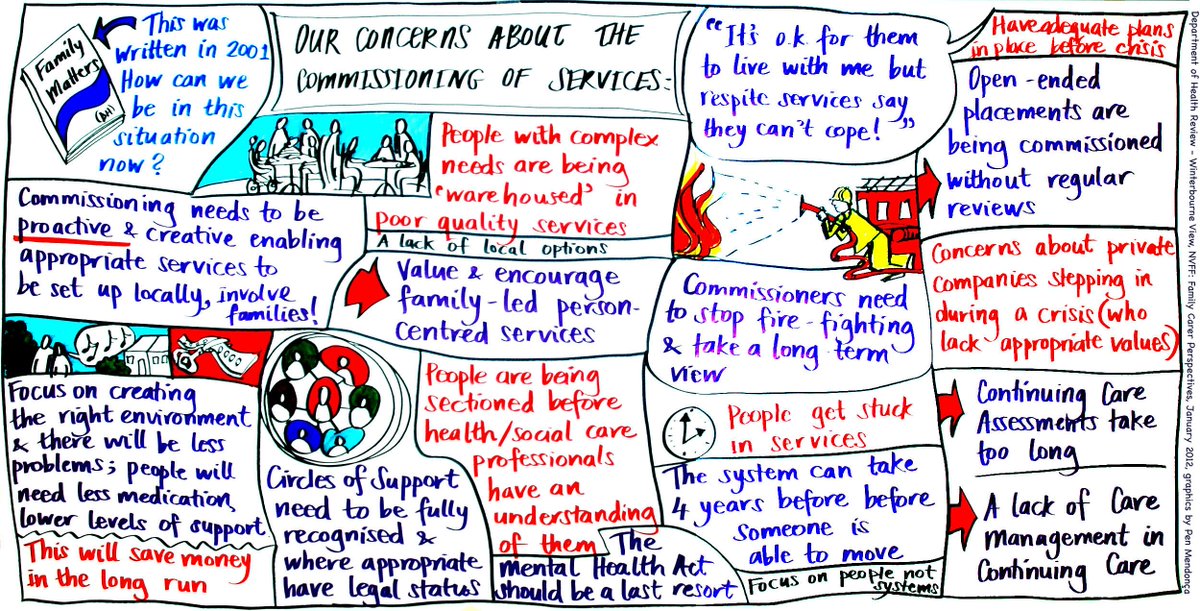 Family
Matters
(DH)
This was
written in 2001
How can we
be in this
situation
now?
OUR CONCERNS ABOUT THE
COMMISSIONING OF SERVICES:
"It's o.k. for them
to live with me but
respite services say
they can't cope!"
Have adequate plans
in place before crisis
Open-ended
placements are
being commissioned
without regular
reviews
People with complex
needs are being
'warehoused' in
poor quality services
A lack of local options
Commissioning needs to be
proactive & creative enabling
appropriate services to
be set up locally, involve
families!
Value & encourage
family-led person-
Centred services
Commissioners need
to stop fire-fighting
& take a long term
view
Concerns about private
companies stepping in
during a crisis (who
lack appropriate values)
Focus on creating
the right environment
& there will be less
problems; people will
need less medication,
lower levels of support
This will save money
in the long run
Circles of Support
need to be fully
recognised &
where appropriate
have legal status
People are being
sectioned before
health/social care
professionals
have an
understanding
of them
The
mental Health Act
should be a last resort
People get stuck
in services
The system can take
4 years before before
someone is
able to move
Focus on people not
systems
Continuing Care
Assessments take
too long
A lack of Care
management in
Continuing Care
Department of Health Review - Winterbourne View, NVFF: Family Carer Perspectives, January 2012, graphics by Pen Mendonça